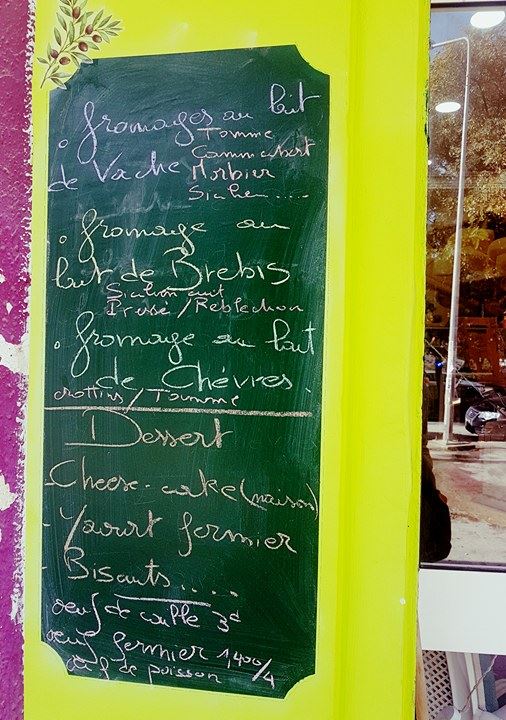 . fromages au lait
Tomme
Cammenbert
de Vache Morbier
. fromage au
lait de Brebis
Pressé / Reblechon
. fromage au lait
de Chèvres
crottins / Tomme
Dessert
- Cheese-cake (maison)
- Yaourt fermier
- Biscuits....
oeuf de caille 3d
oeuf fermier 1,400/4
de poisson